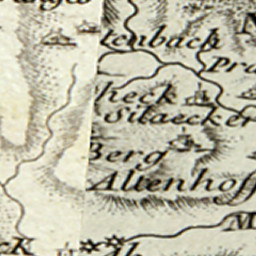 tenbach
Pra
heck
Silaecker
Berg
Altenhoff
M
ck
Al